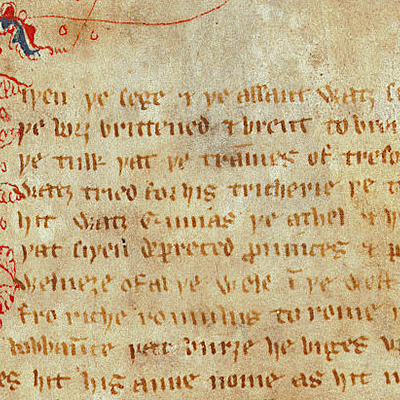 iþen þe sege & þe assaut watz
þe borȝ brittened & brent to
þe tulk þat þe trāmes of treso
watz tried for his tricherie þe
hit watz Ennias þe athel & h
þat siþen depreced prouinces & p
welneȝe of al þe wele ī þe west
fro riche romulus to rome
bobbaūce þat burȝe he biges
hit his aune nome as hit